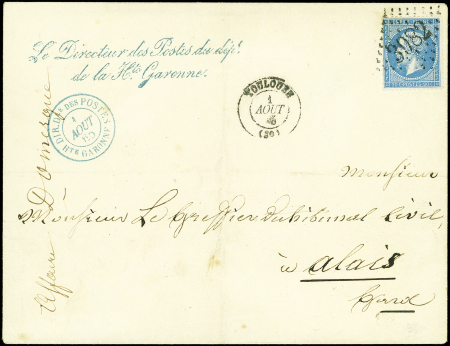 Le Directeur des Postes du Dépt.
de la Hte Garonne.
DIR. DES POSTES
1
AOUT
65
HTE GARONNE
TOULOUSE
1
AOUT
(30)
3982
Affaire Domergue
Monsieur
Monsieur Le Greffier du tribunal Civil,
à Alais
Gard